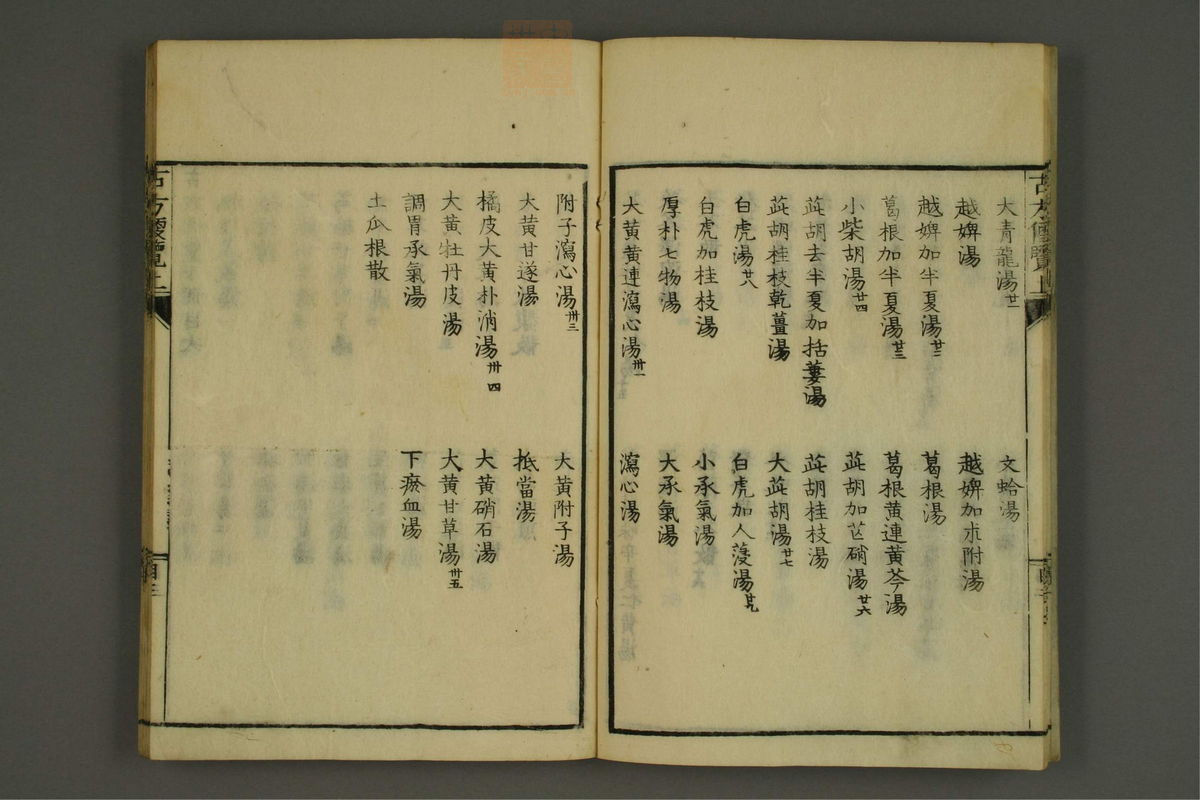 大青龍湯 廿一
文蛤湯
越婢湯
越婢加朮附湯
越婢加半夏湯 廿二
葛根湯
葛根加半夏湯 廿三
葛根黄連黄芩湯
小柴胡湯 廿四
茈胡加芒硝湯 廿六
茈胡去半夏加括蔞湯
茈胡桂枝湯
茈胡桂枝乾薑湯
大茈胡湯 廿七
白虎湯 廿八
白虎加人蓡湯 廿九
白虎加桂枝湯
小承氣湯
厚朴七物湯
大承氣湯
大黄黄連瀉心湯 卅一
瀉心湯
附子瀉心湯 卅三
大黄附子湯
大黄甘遂湯
抵當湯
橘皮大黄朴消湯 卅四
大黄硝石湯
大黄牡丹皮湯
大黄甘草湯 卅五
調胃承氣湯
下瘀血湯
土瓜根散
古方便覽上